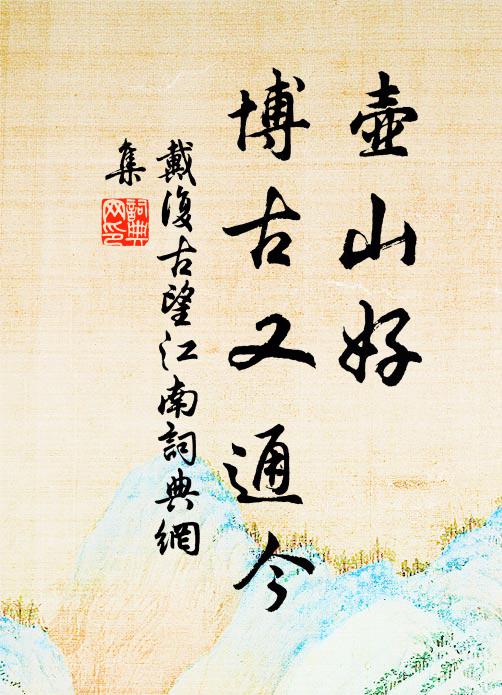 壺山好
博古又通今
戴復古望江南詞典網
集
詞典
网印